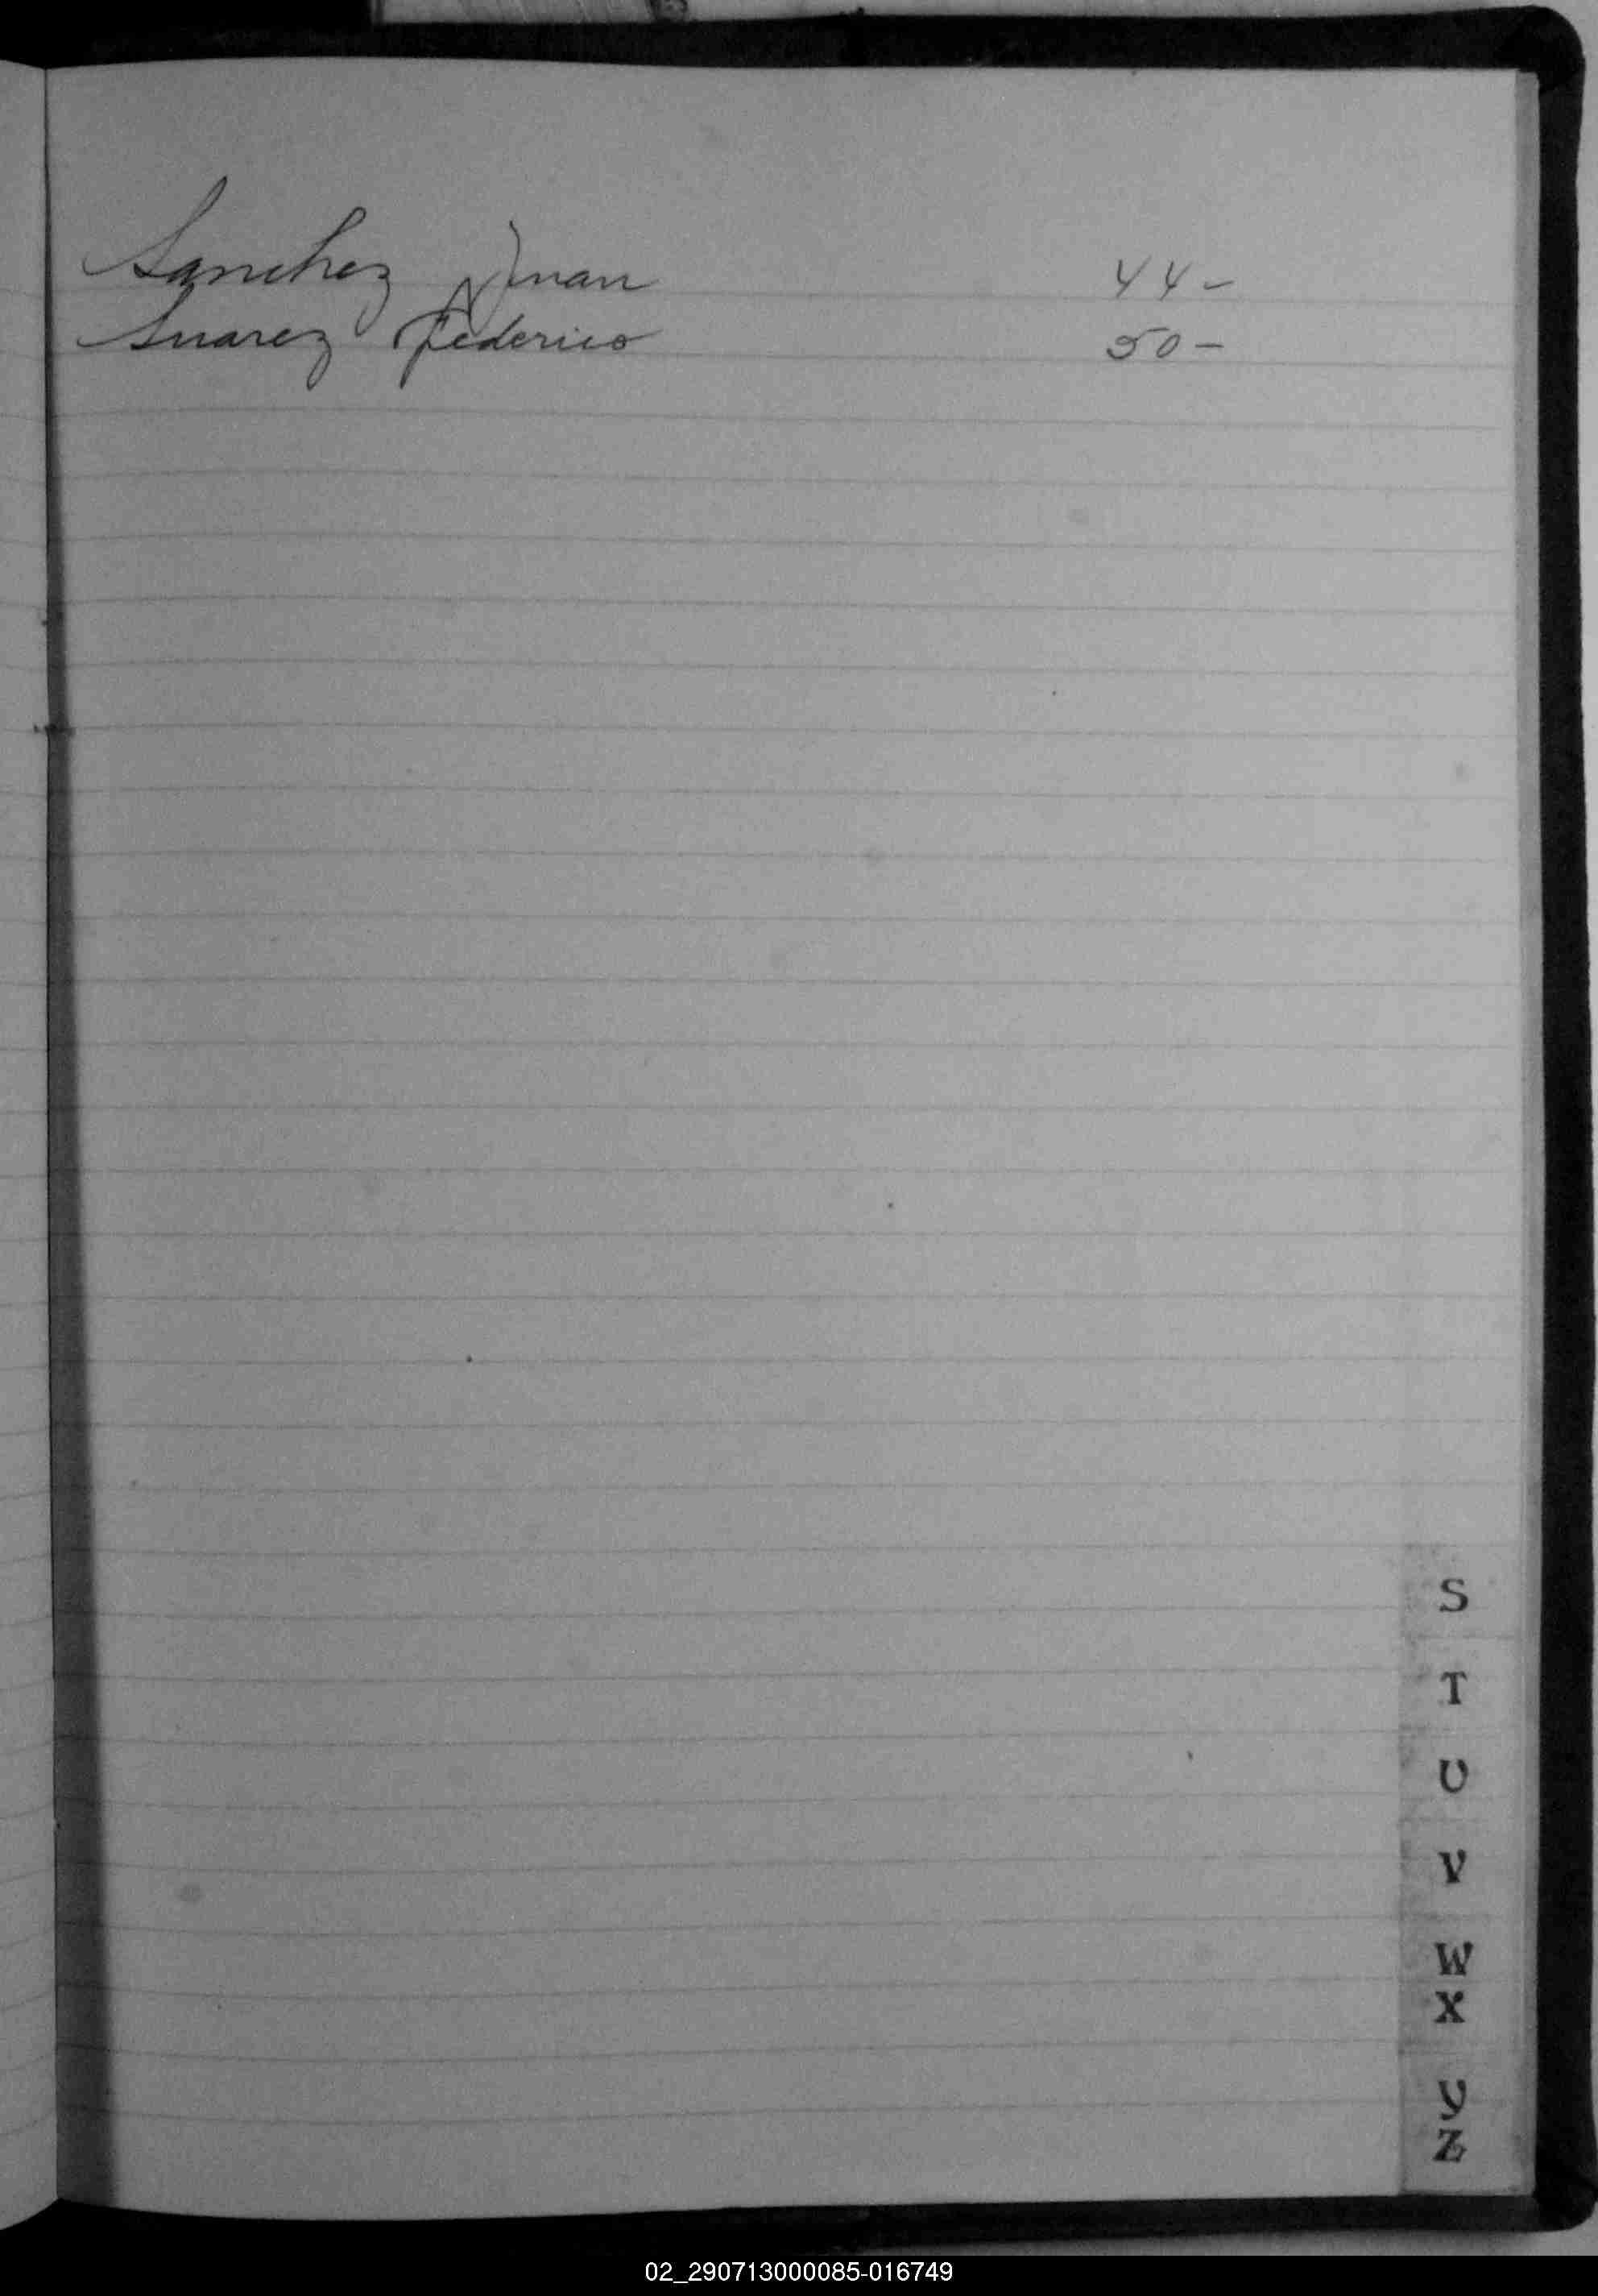 Sanchez Juan 44-
Suarez Federico 50-
S
T
U
V
W
X
Y
Z
02_290713000085-016749